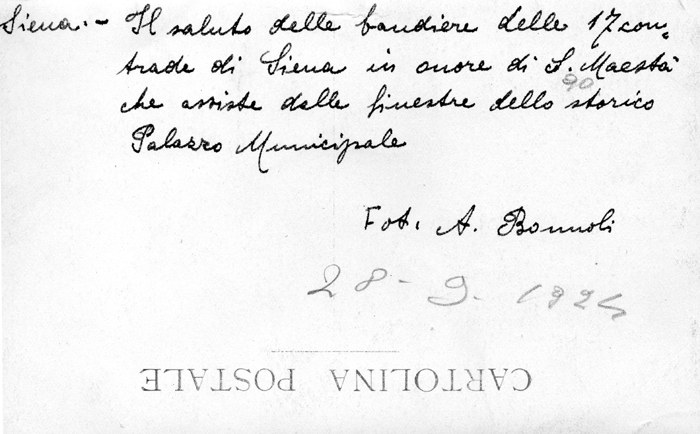 Siena.- Il saluto delle bandiere delle 17 con=
trade di Siena in onore di S. Maestà
90
che assiste dalle finestre dello storico
Palazzo Municipale
Fot. A. Bonnoli
28-9-1924
CARTOLINA POSTALE